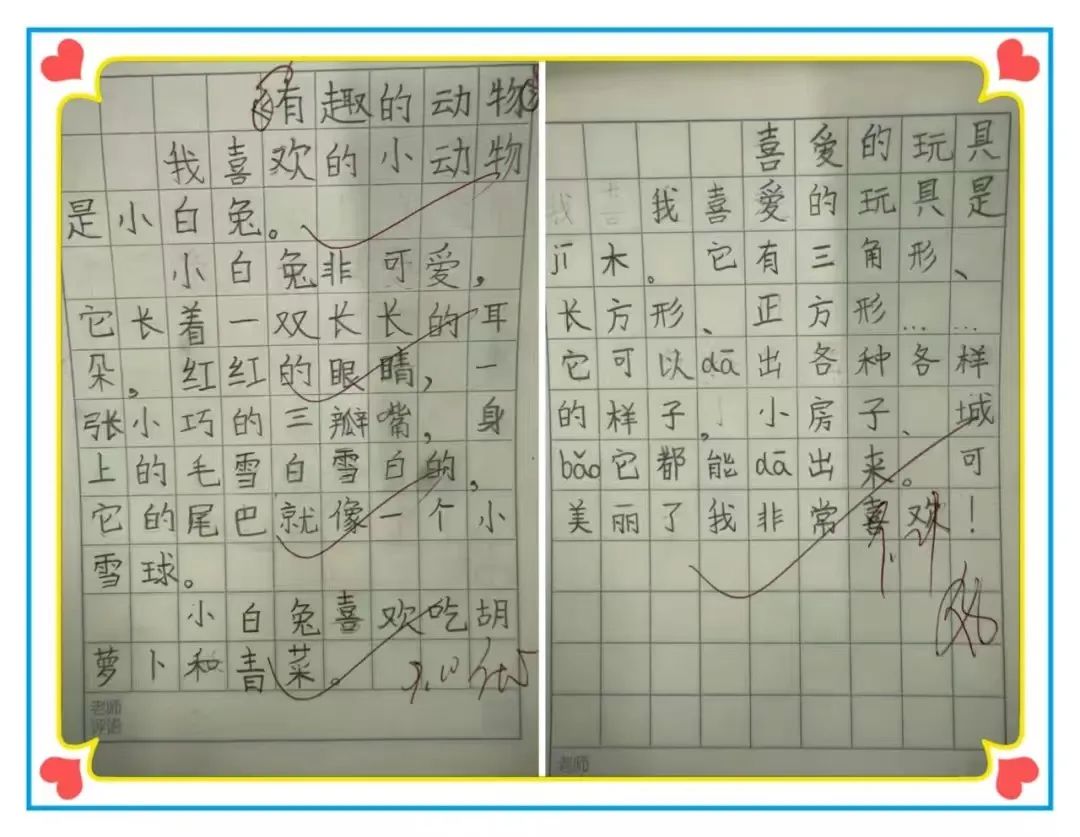 有趣的动物
我喜欢的小动物
是小白兔。
小白兔非可爱,
它长着一双长长的耳
朵。红红的眼睛,一
张小巧的三瓣嘴,身
上的毛雪白雪白的,
它的尾巴就像一个小
雪球。
小白兔喜欢吃胡
萝卜和青菜。
老师
评语
喜爱的玩具
我喜爱的玩具是
jī木。它有三角形、
长方形、正方形……
它可以dā出各种各样
的样子,小房子、城
bǎo它都能dā出来。可
美丽了我非常喜欢!
老师